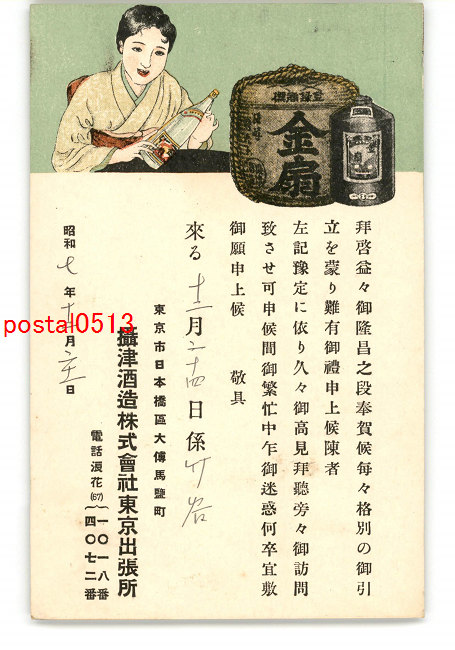 登録商標
金扇
拝啓益々御隆昌之段奉賀候每々格別の御引
立を蒙り難有御禮申上候陳者
左記豫定に依り久々御高見拜聽旁々御訪問
致させ可申候間御繁忙中乍御迷惑何卒宜敷
御願申上候 敬具
來る十二月二十四日係竹谷
東京市日本橋區大傳馬鹽町
攝津酒造株式會社東京出張所
電話浪花(67)一〇一八番
四〇七二番
昭和七年 月 日
postal0513